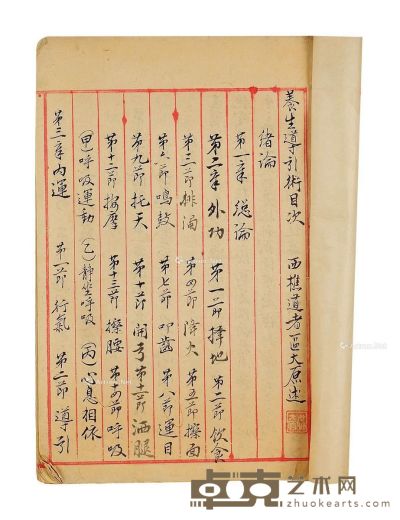 養生導引術目次　西樵道者區大原述
緒論
第一章 總論
第二章 外功　第一節 擇地　第二節 飲食
第三節 排濁　第四節 降火　第五節 擦面
第六節 鳴鼓　第七節 叩齒　第八節 運目
第九節 托天　第十節 開弓　第十一節 洒腿
第十二節 按摩　第十三節 擦腰　第十四節 呼吸
(甲)呼吸運動　(乙)靜坐呼吸　(丙)心息相依
第三章 內運　第一節 行氣　第二節 導引
卓克艺术网
www.zhuokearts.com